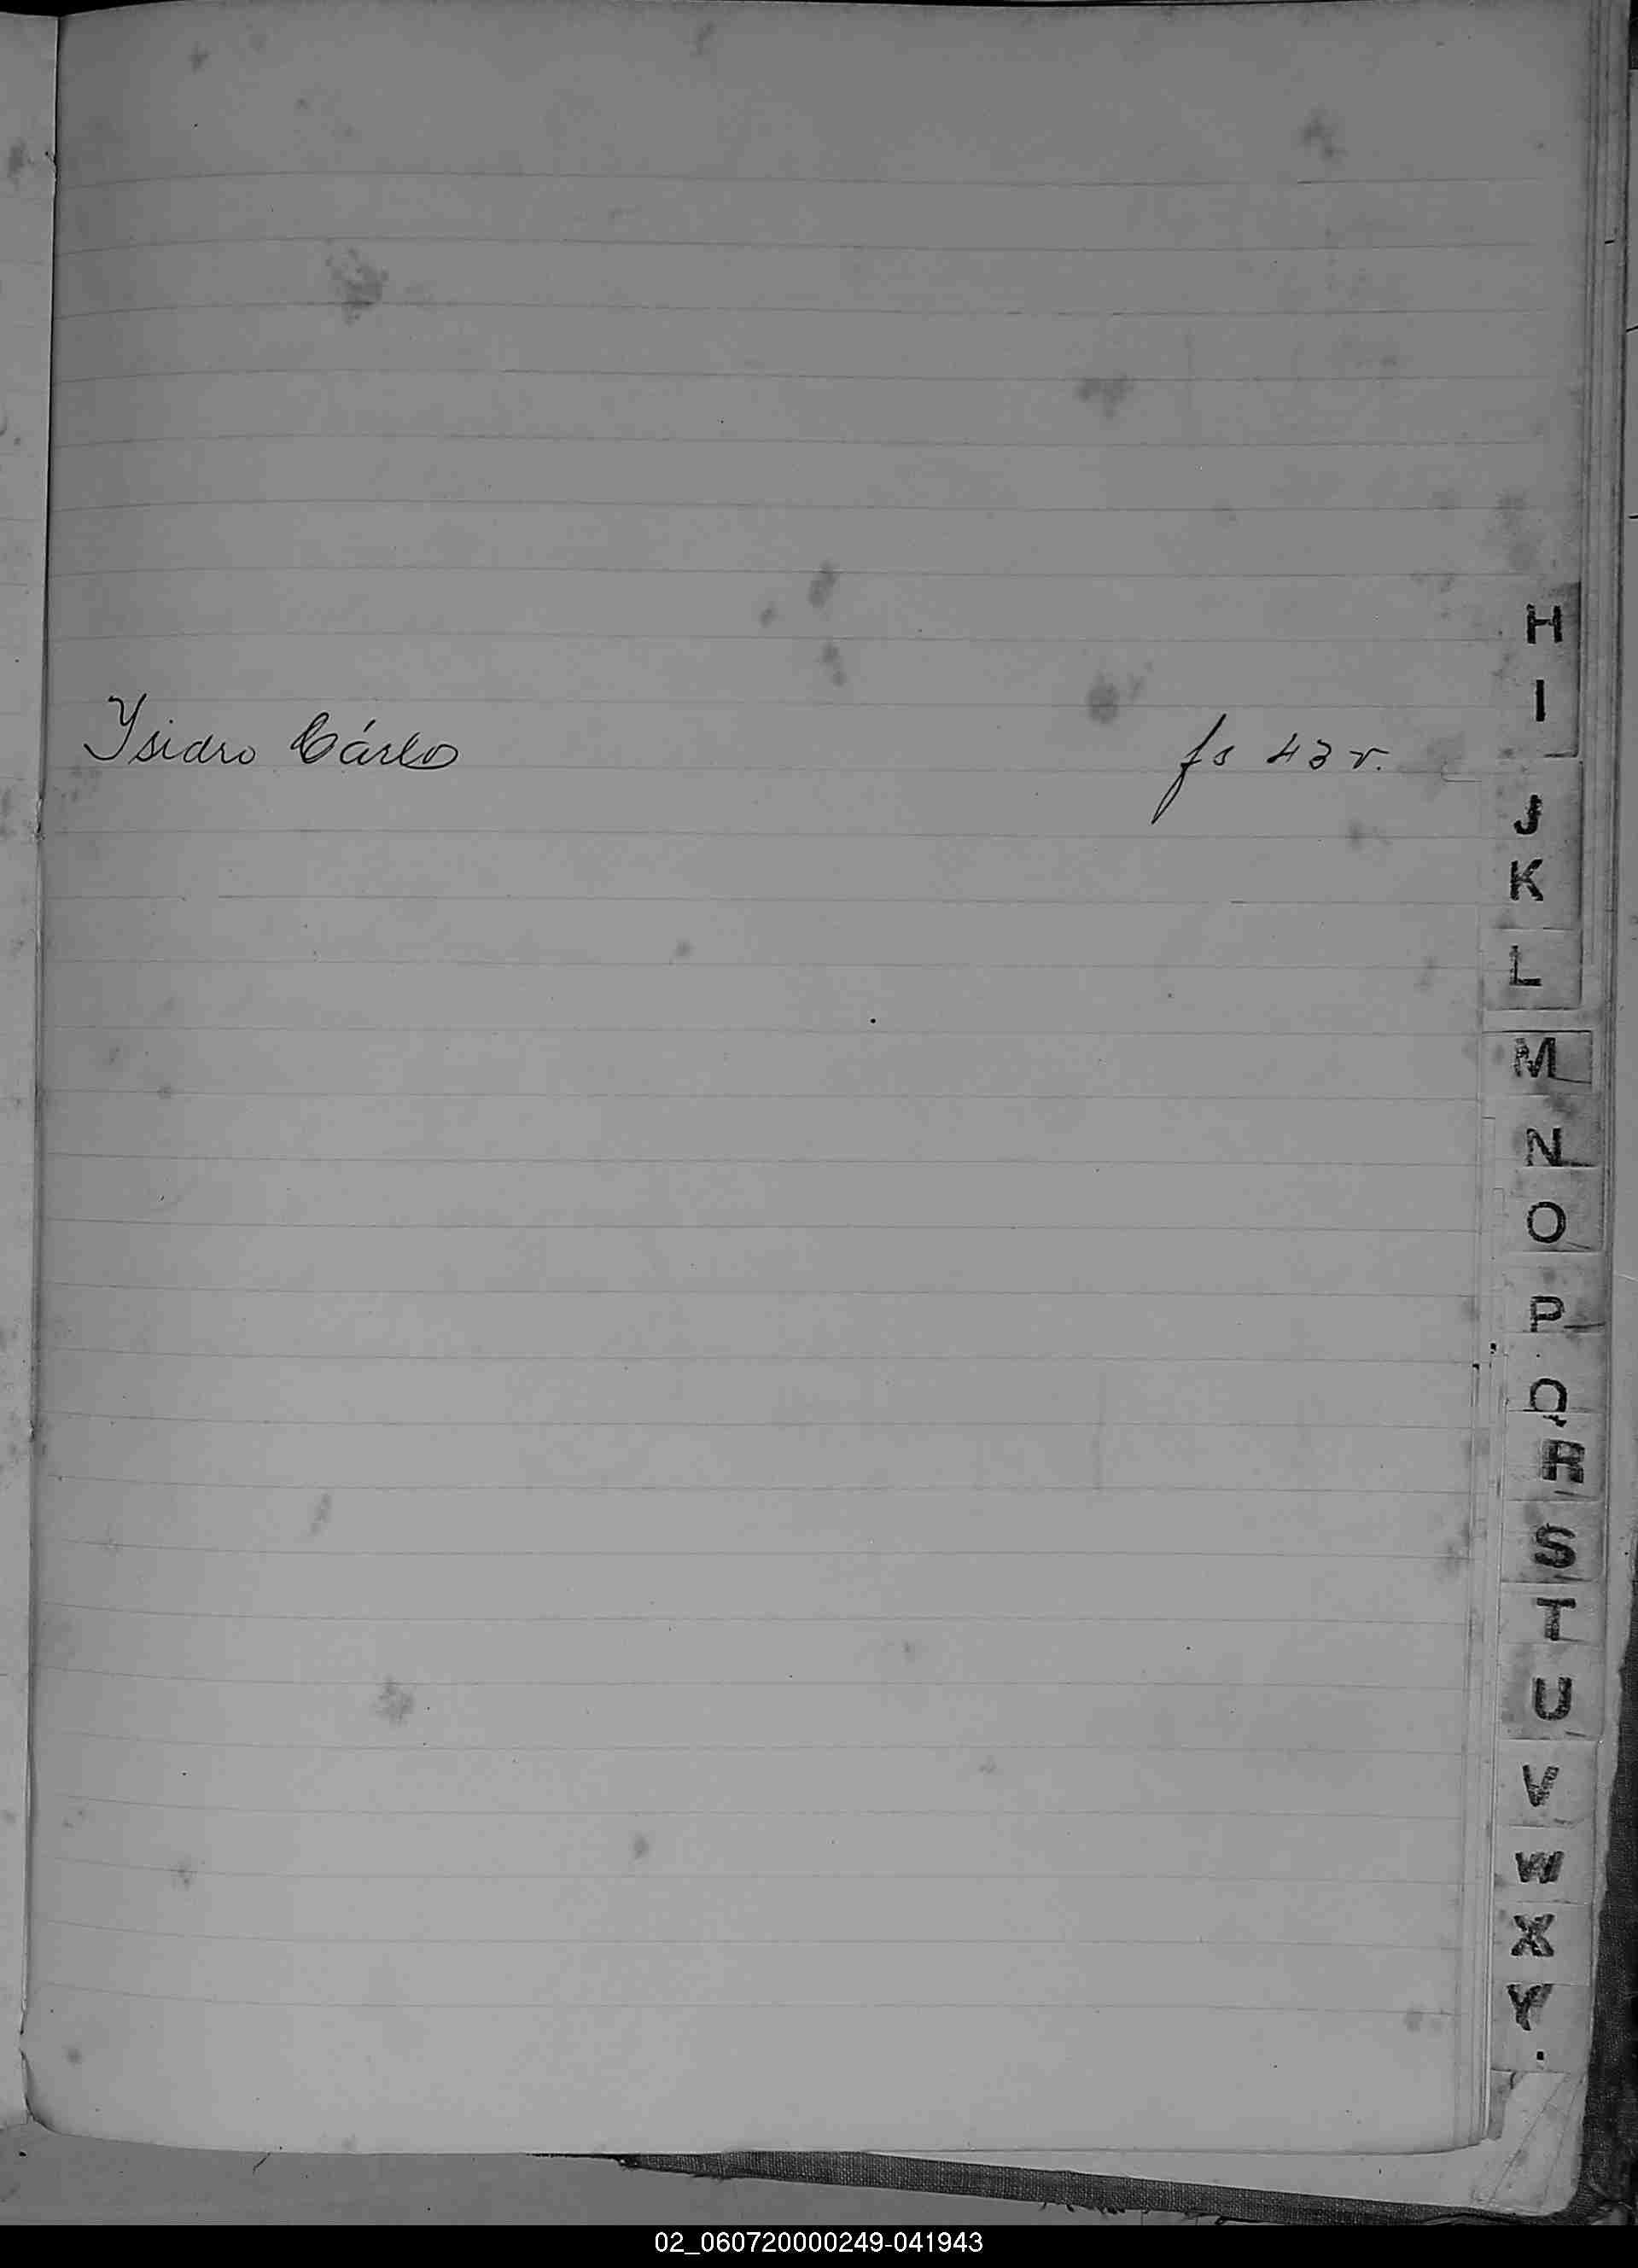 H
I
Ysidro Cárlo fs 43 v.
J
K
L
M
N
O
P
Q
R
S
T
U
V
W
X
Y
02_060720000249-041943